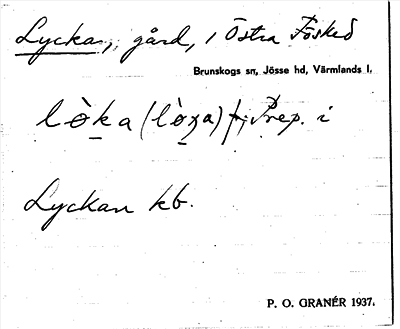 Lyckan, gård, i Östra Fösked
Brunskogs sn, Jösse hd, Värmlands l.
lò̱ka (lò̱ʒa) f.; Prep. i
Lyckan kb.
P. O. GRANÉR 1937.